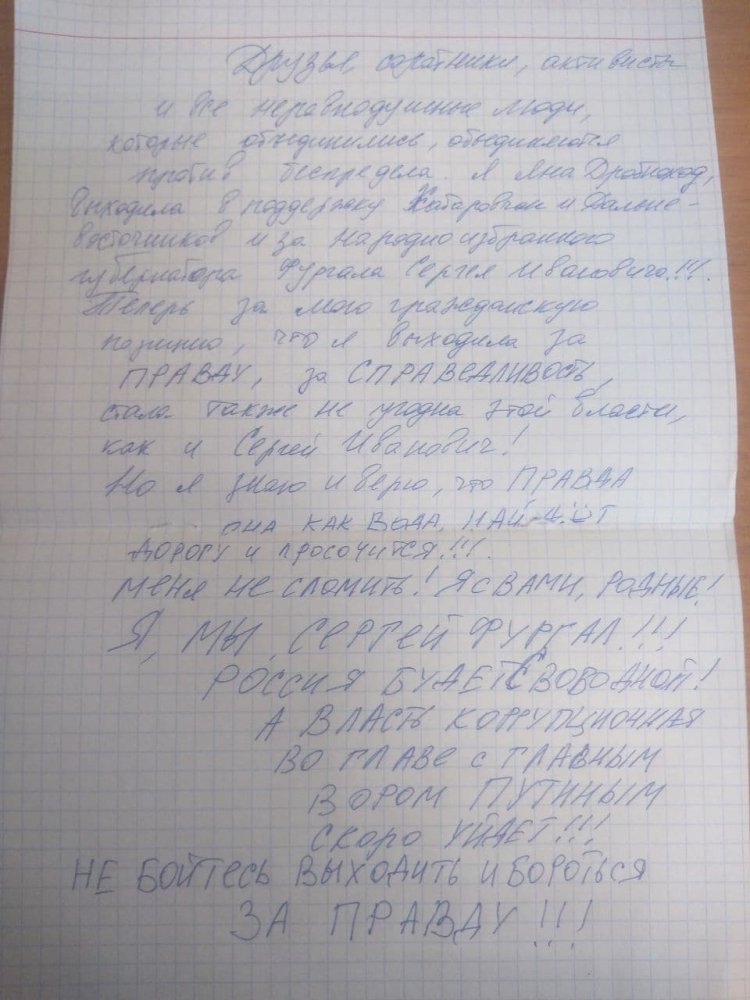 Друзья, соратники, активисты
и все неравнодушные люди,
которые объединились, объединяются
против беспредела. Я Яна Дробноход,
выходила в поддержку Хабаровчан и Дальне-
восточников и за народноизбранного
губернатора Фургала Сергея Ивановича!!!.
Теперь за мою гражданскую
позицию, что я выходила за
ПРАВДУ, за СПРАВЕДЛИВОСТЬ,
стала также не угодна этой власти,
как и Сергей Иванович!
Но я знаю и верю, что ПРАВДА
ОНА КАК ВОДА, НАЙДЁТ
ДОРОГУ и просочится!!!.
МЕНЯ НЕ СЛОМИТЬ! Я С ВАМИ, РОДНЫЕ!
Я, МЫ, СЕРГЕЙ ФУРГАЛ!!!
РОССИЯ БУДЕТ СВОБОДНОЙ!
А ВЛАСТЬ КОРРУПЦИОННАЯ
ВО ГЛАВЕ С ГЛАВНЫМ
ВОРОМ ПУТИНЫМ
СКОРО УЙДЕТ!!!
НЕ БОЙТЕСЬ ВЫХОДИТЬ И БОРОТЬСЯ
ЗА ПРАВДУ!!!